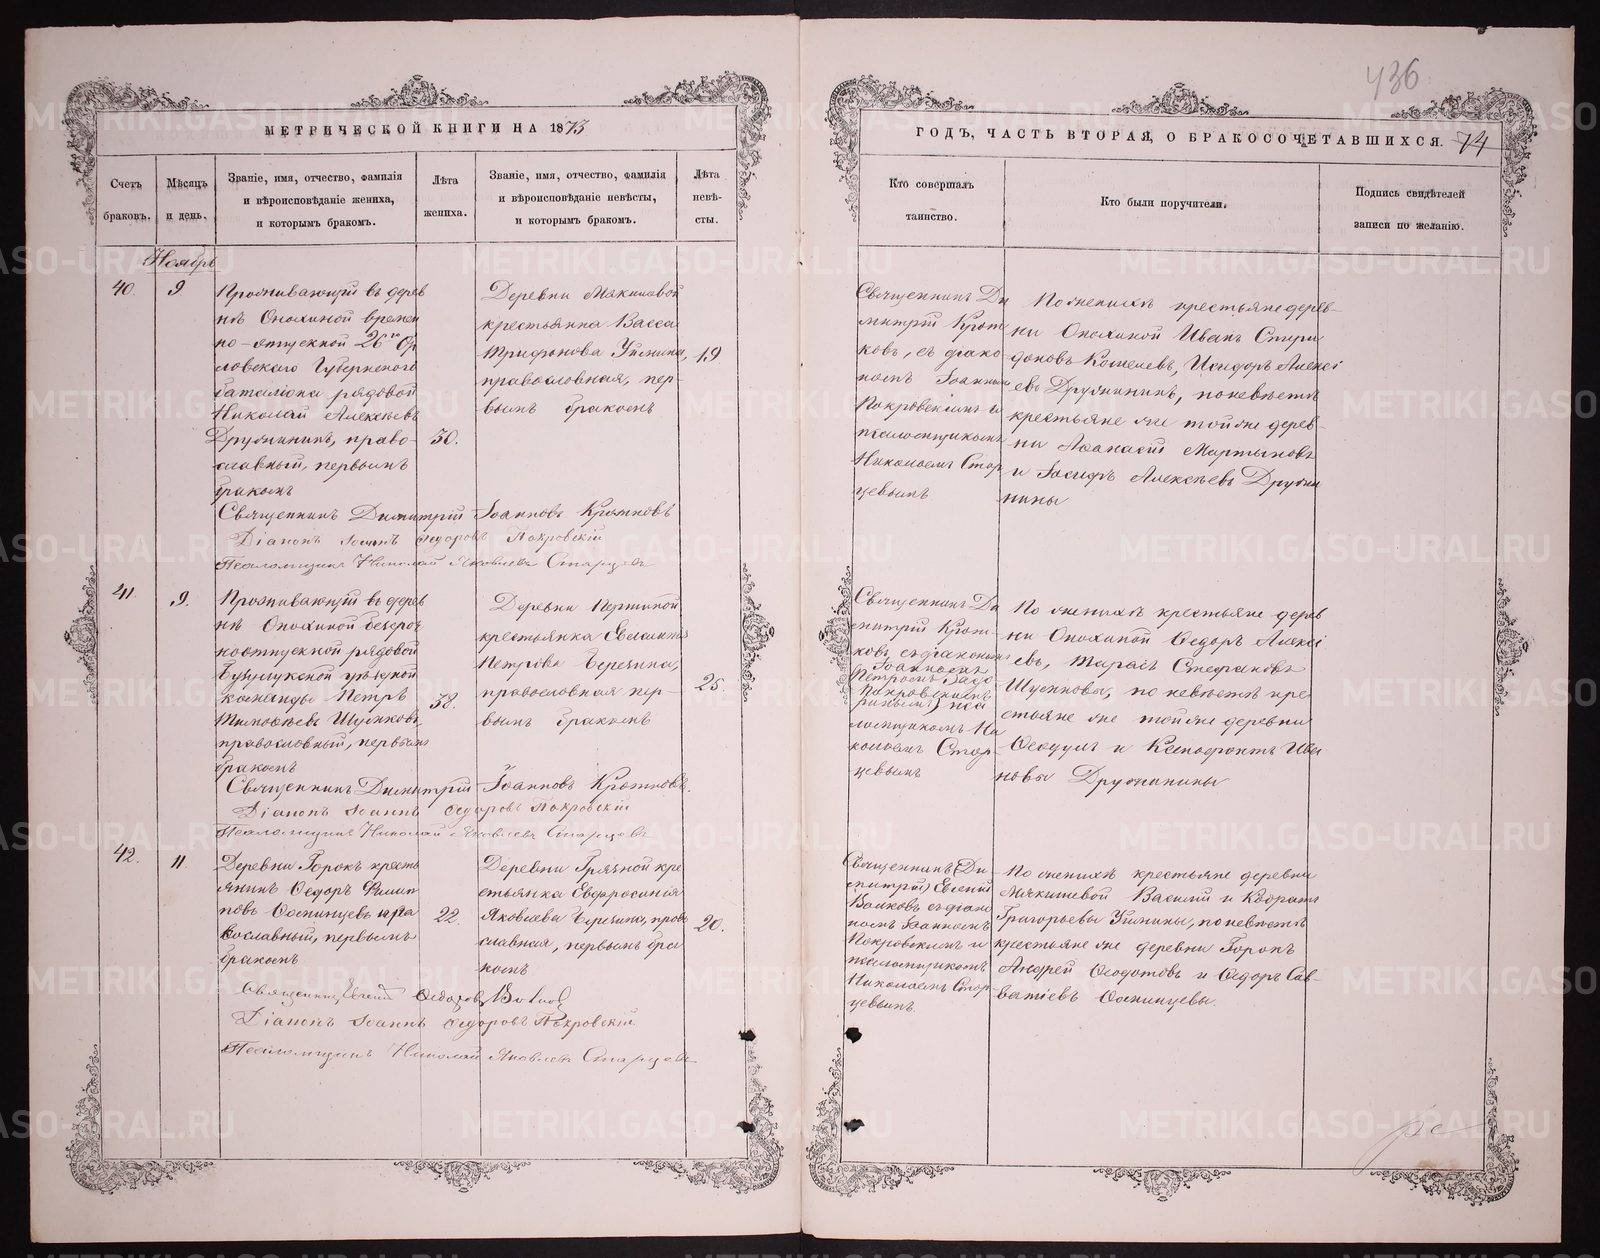 436
МЕТРИЧЕСКОЙ КНИГИ НА 1873
ГОДЪ, ЧАСТЬ ВТОРАЯ, О БРАКОСОЧЕТАВШИХСЯ. 74
Счетъ браковъ.
Мѣсяцъ и день.
Званіе, имя, отчество, фамилія
и вѣроисповѣданіе жениха,
и которымъ бракомъ.
Лѣта жениха.
Званіе, имя, отчество, фамилія
и вѣроисповѣданіе невѣсты,
и которымъ бракомъ.
Лѣта невѣ-
сты.
Кто совершалъ
таинство.
Кто были поручители.
Подпись свидѣтелей
записи по желанію.
Ноябрь
40.
9
Проживающій въ дерев
нѣ Опохиной времен
но-отпускной 26го Ор
ловскаго Губернскаго
баталіона рядовой
Николай Алексѣевъ
Дружининъ, право-
славный, первымъ
бракомъ
30.
Деревни Мякишевой
крестьянка Васса
Трифонова Ужинина,
православная, пер-
вымъ бракомъ
19
Священникъ Ди
митрій Кротко
ковъ, съ діако
номъ Іоанномъ
Покровскимъ и
псаломщикомъ
Николаемъ Стар
цевымъ
По женихѣ крестьяне дерев-
ни Опохиной Иванъ Спири
доновъ Кошелевъ, Исидоръ Алексѣ
евъ Дружининъ, по невѣстѣ
крестьяне же той же дерев-
ни Афанасій Мартыновъ
и Іосифъ Алексѣевъ Дружи
нины
Священникъ Димитрій Іоанновъ Кротковъ
Діаконъ Іоаннъ Ѳедоровъ Покровскій
Псаломщикъ Николай Яковлевъ Старцевъ
41.
9.
Проживающій въ дерев
нѣ Опохиной безсроч
ноотпускной рядовой
Бузулукской уѣздной
команды Петръ
Тимофѣевъ
православный, первымъ
бракомъ
38.
Деревни
крестьянка
Петрова Березина,
православная пер-
вымъ бракомъ
25.
Священникъ Ди
митрій Крот-
ковъ, съ діакономъ
Іоанномъ
Покровскимъ
псаломщикомъ Ни
колаемъ Стар
цевымъ
По женихѣ крестьяне дерев
ни Опохиной Ѳедоръ Алексѣ
евъ, Тарасъ Стефановъ
по невѣстѣ кре-
стьяне же той же деревни
и Ксенофонтъ Ива
новы Дружинины
Священникъ Димитрій Іоанновъ Кротковъ.
Діаконъ Іоаннъ Ѳедоровъ Покровскій
Псаломщикъ Николай Яковлевъ Старцевъ
42.
11.
Деревни Горокъ кресть
янинъ Ѳедоръ Филип
повъ Оспинцевъ пра
вославный, первымъ
бракомъ
22.
Деревни Грязной кре
стьянка Евфросинія
Яковлева Березина, право
славная, первымъ бра
комъ
20.
Священникъ (Ди
митрій) Евгеній
Волковъ съ діако
номъ Іоанномъ
Покровскимъ и
псаломщикомъ
Николаемъ Стар-
цевымъ.
По женихѣ крестьяне деревни
Мякишевой Василій и Кодратъ
Григорьевы Ужинины, по невѣстѣ
крестьяне же деревни Горокъ
Андрей Ѳеодотовъ и Ѳедоръ Сав-
ватіевъ Оспинцевы.
Священникъ Евгеній Ѳедоровъ Волковъ
Діаконъ Іоаннъ Ѳедоровъ Покровскій
Псаломщикъ Николай Яковлевъ Старцевъ
METRIKI.GASO-URAL.RU